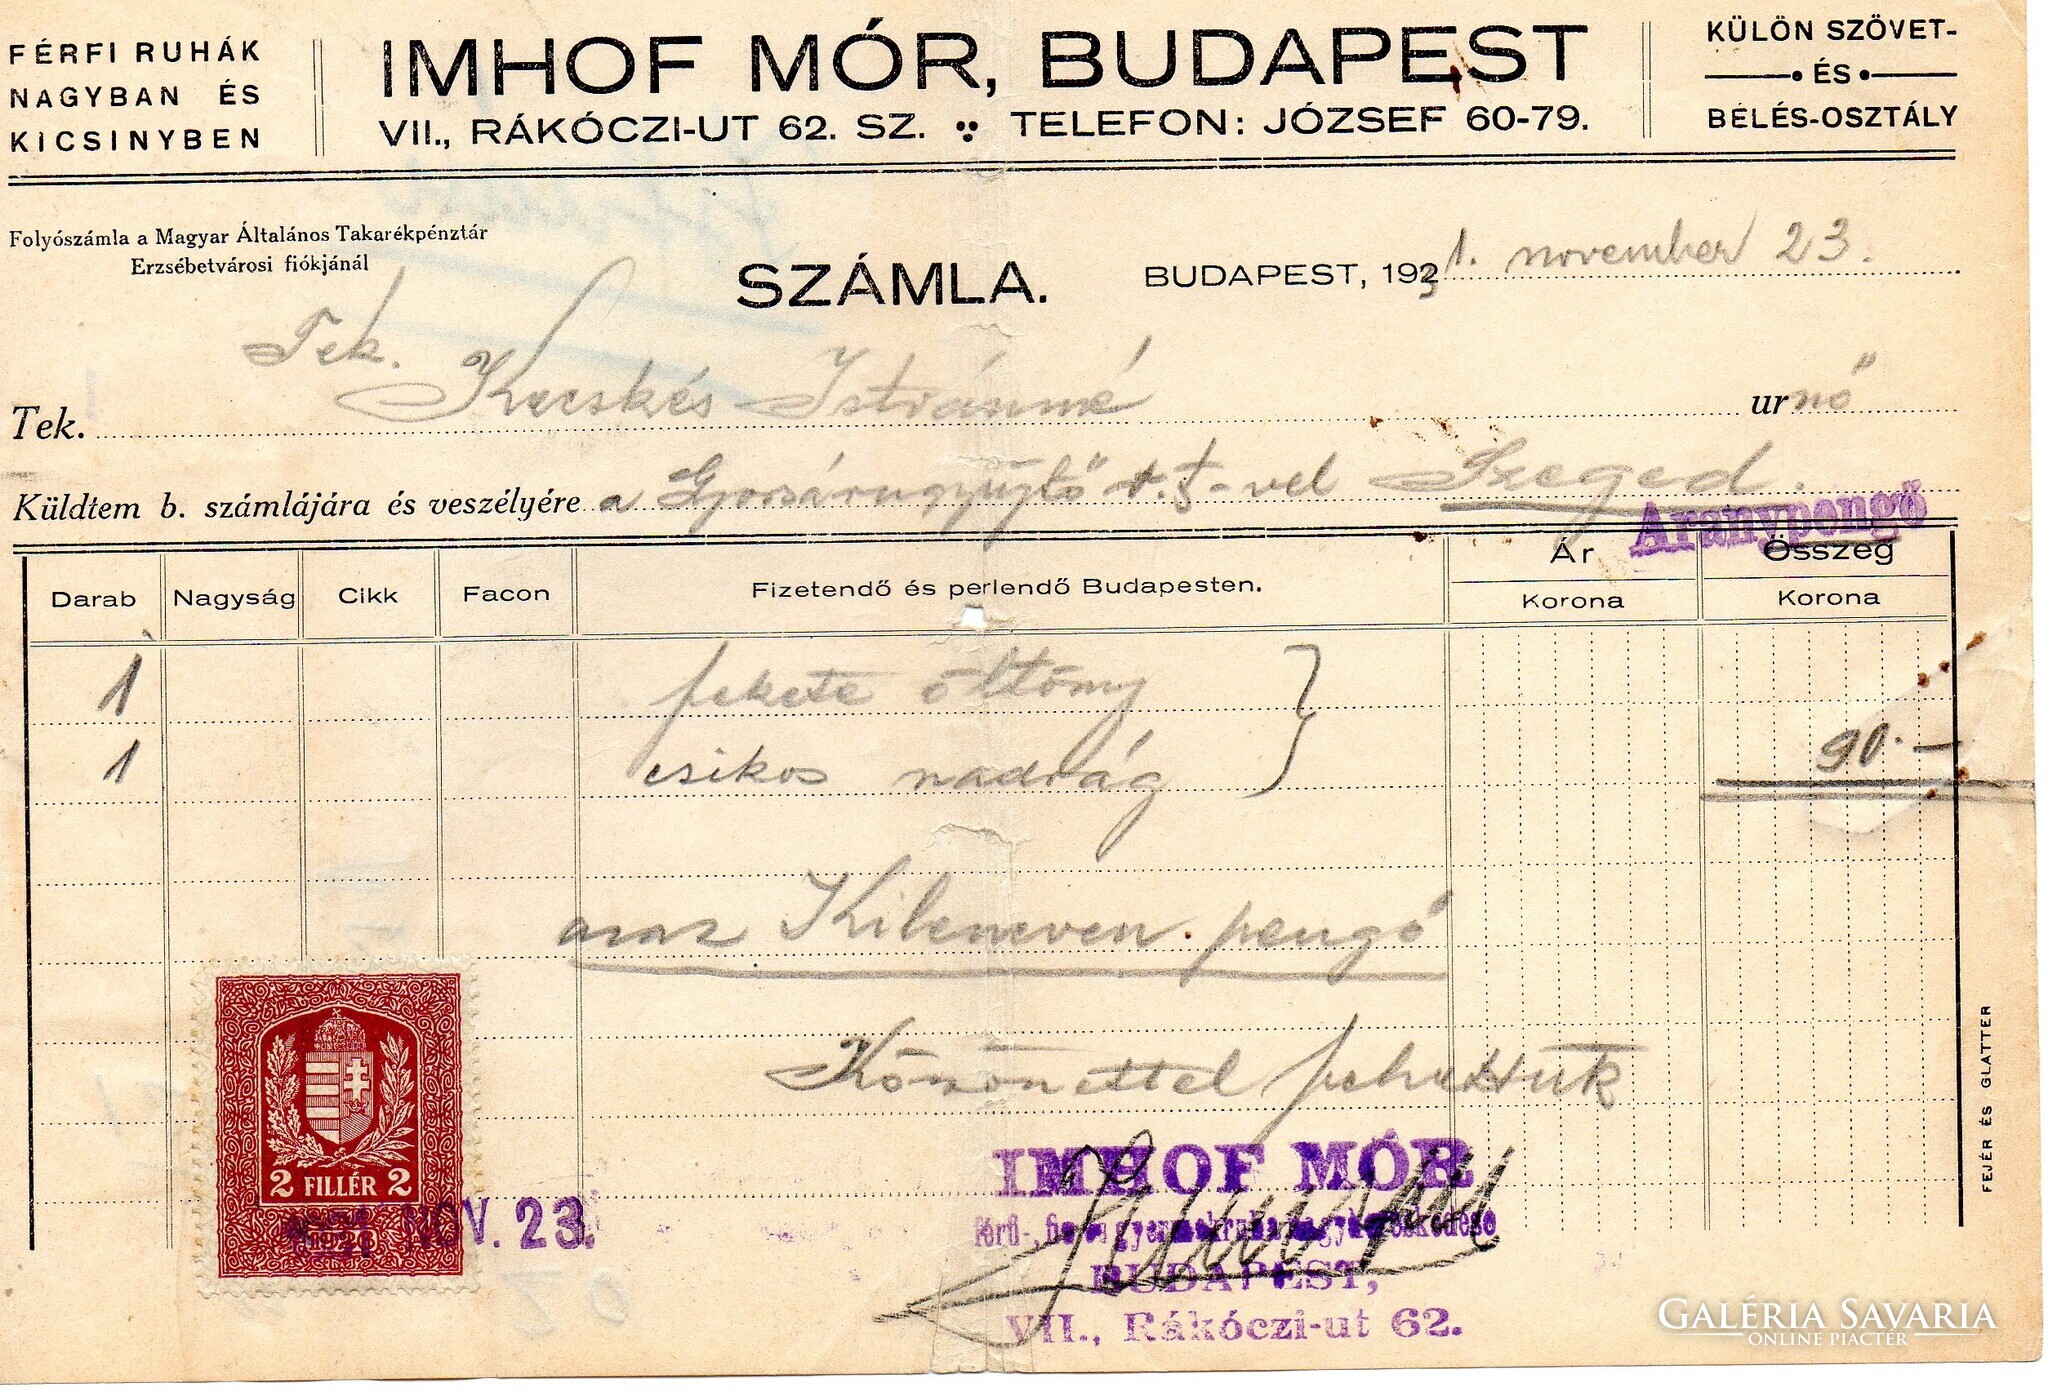 FÉRFI RUHÁK
NAGYBAN ÉS
KICSINYBEN
IMHOF MÓR, BUDAPEST
VII., RÁKÓCZI-UT 62. SZ. TELEFON: JÓZSEF 60-79.
KÜLÖN SZÖVET-
ÉS
BÉLÉS-OSZTÁLY
Folyószámla a Magyar Általános Takarékpénztár
Erzsébetvárosi fiókjánál
SZÁMLA.
BUDAPEST, 1931. november 23.
Tek.
Tek. Kecskés Istvánné urnő
Küldtem b. számlájára és veszélyére a Gyorsárugyűjtő r.t-vel Szeged.
Aranypengő
Darab Nagyság Cikk Facon Fizetendő és perlendő Budapesten. Ár Korona Összeg Korona
1 fekete öltöny
1 csikos nadrág 90.—
azaz Kilencven pengő
Köszönettel felvettük
2 FILLÉR 2
NOV. 23.
IMHOF MÓR
BUDAPEST,
VII., Rákóczi-ut 62.
FEJÉR ÉS GLATTER
GALÉRIA SAVARIA
ONLINE PIACTÉR